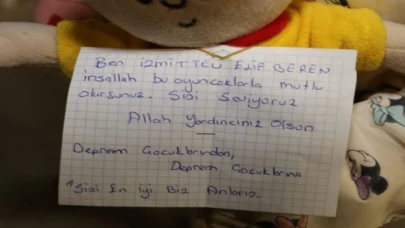 Ben izmitten Elif BEREN
inşallah bu oyuncaklarla mutlu
olursunuz. Sizi Seviyoruz
Allah Yardımcınız Olsun
Deprem Çocuklarından,
Deprem Çocuklarına
"Sizi En iyi Biz Anlarız.